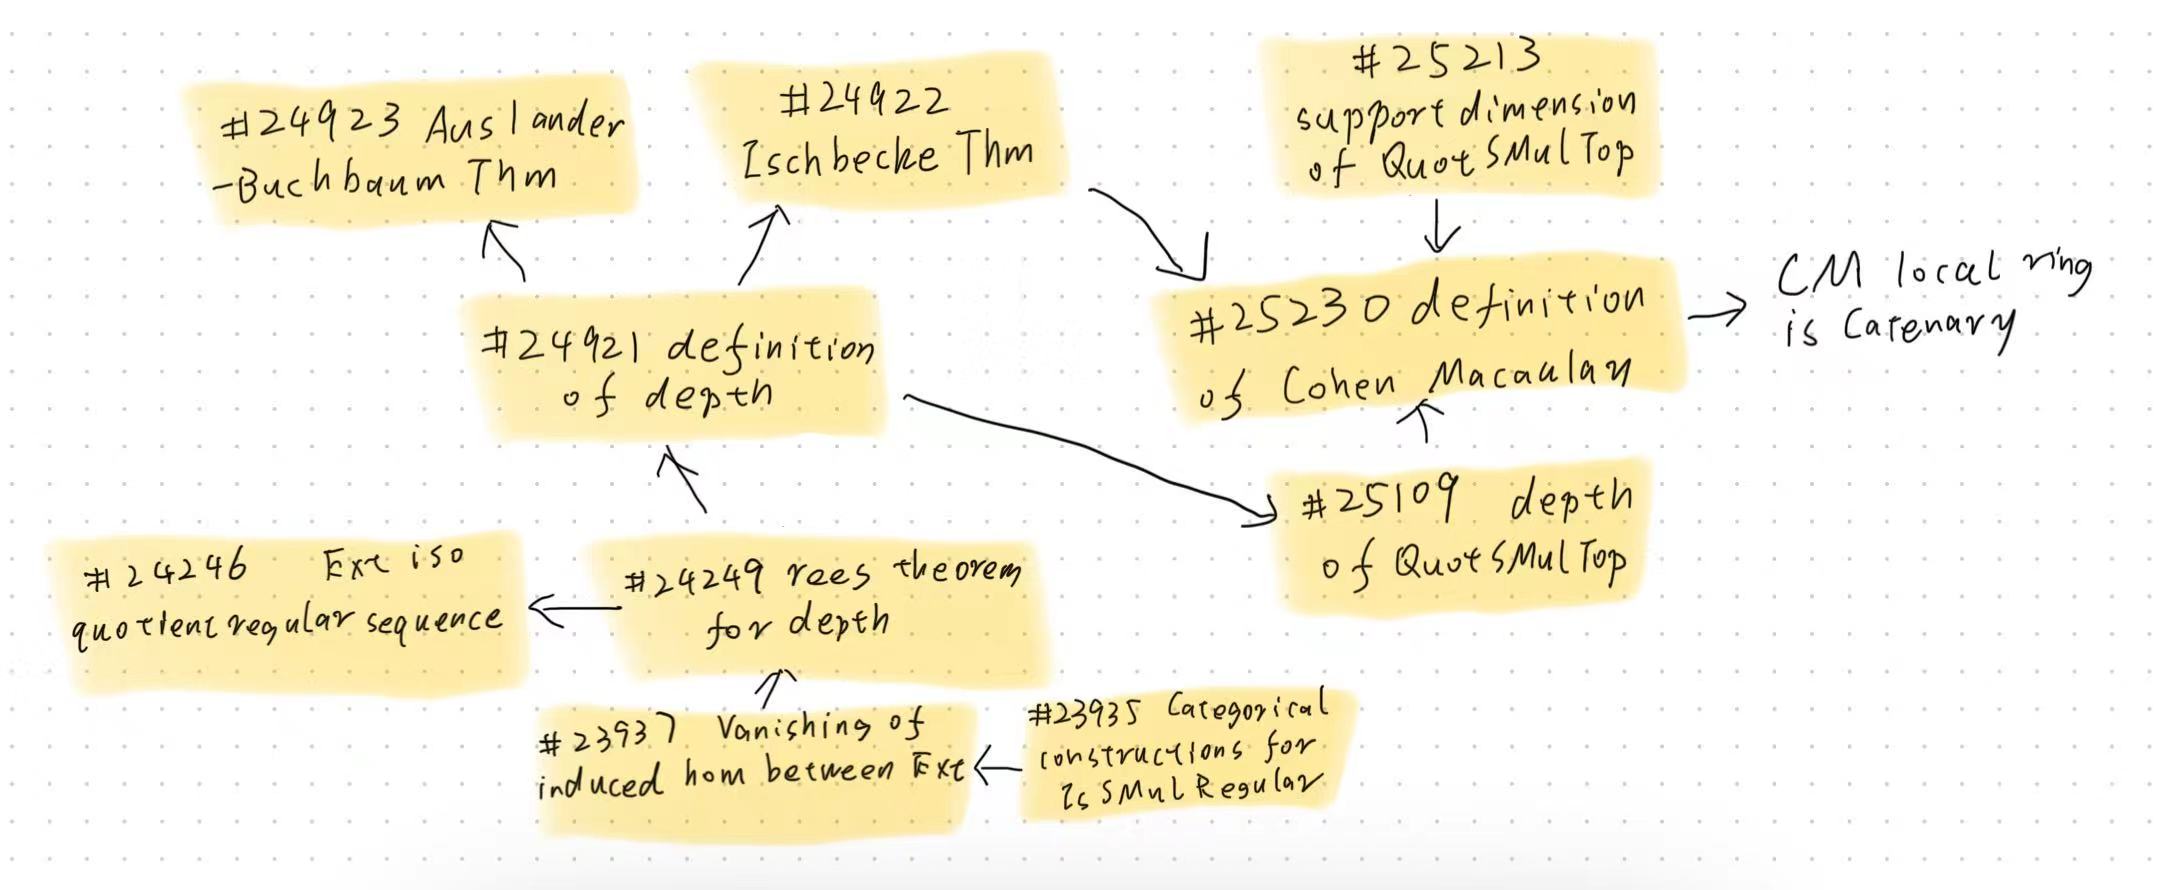 #24923 Auslander
-Buchbaum Thm
#24922
Ischbecke Thm
#25213
support dimension
of QuotSMulTop
#24921 definition
of depth
#25230 definition
of Cohen Macaulay
CM local ring
is Catenary
#25109 depth
of QuotSMulTop
#24246 Ext iso
quotient regular sequence
#24249 rees theorem
for depth
#23937 Vanishing of
induced hom between Ext
#23935 Categorical
constructions for
IsSMulRegular